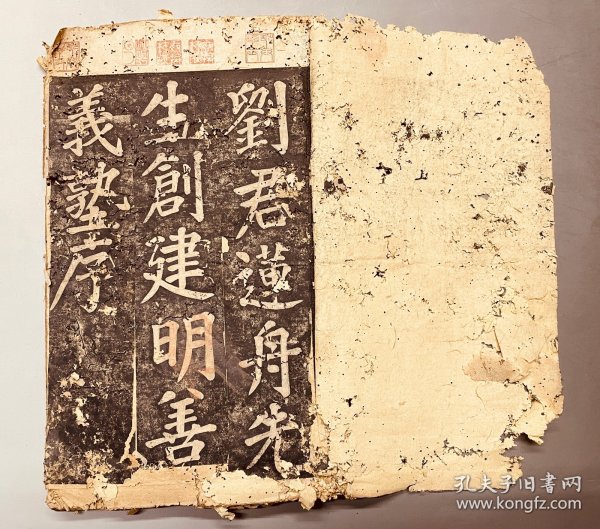 劉君蓮舟先
生創建明善
義塾序
孔夫子旧书网
www.kongfz.com